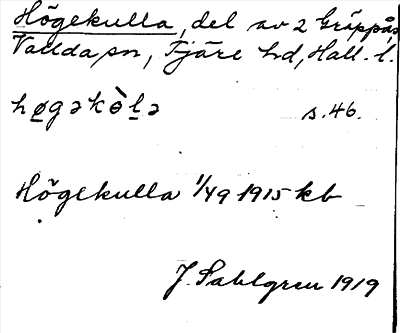 Högekulla, del av 2 Gräppås,
Vallda sn, Fjäre hd, Hall. l.
høgəkòlə s. 46.
Högekulla 1/49 1915 kb
J. Sahlgren 1919